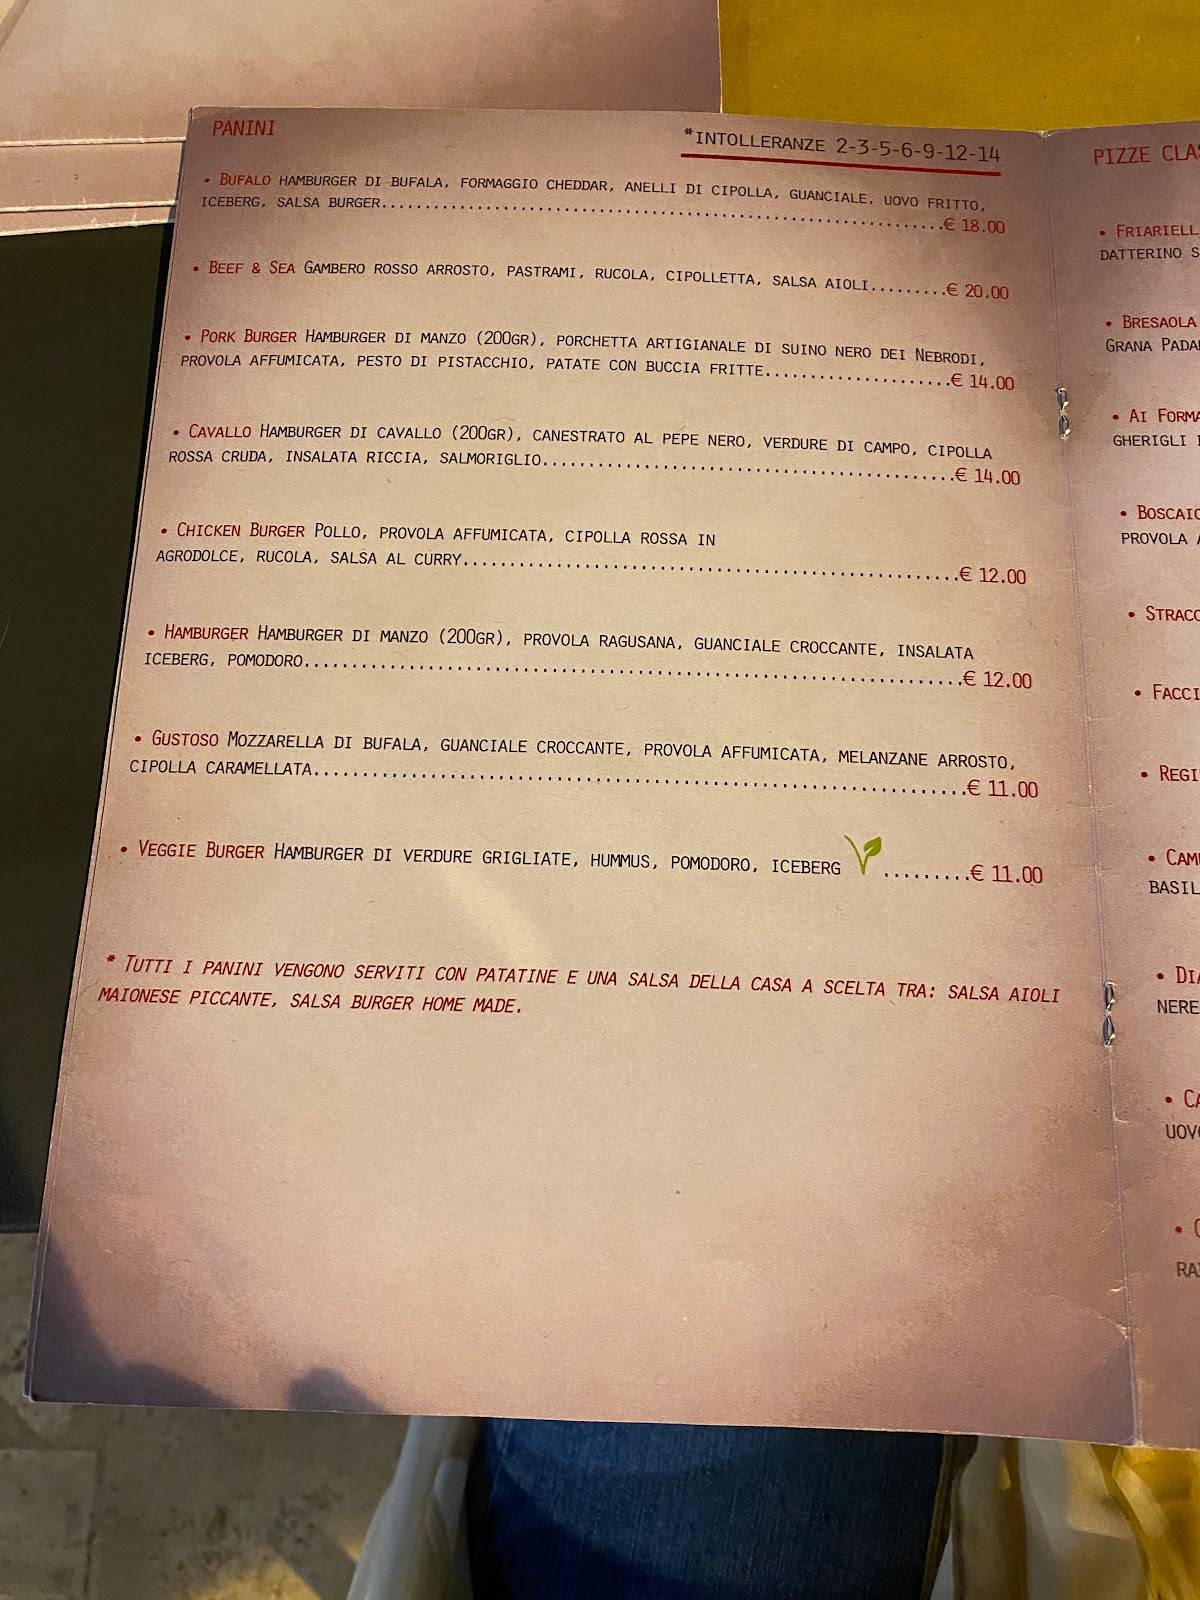 PANINI
*INTOLLERANZE 2-3-5-6-9-12-14
• BUFALO HAMBURGER DI BUFALA, FORMAGGIO CHEDDAR, ANELLI DI CIPOLLA, GUANCIALE, UOVO FRITTO,
ICEBERG, SALSA BURGER...€ 18.00
• BEEF & SEA GAMBERO ROSSO ARROSTO, PASTRAMI, RUCOLA, CIPOLLETTA, SALSA AIOLI.........€ 20.00
• PORK BURGER HAMBURGER DI MANZO (200GR), PORCHETTA ARTIGIANALE DI SUINO NERO DEI NEBRODI,
PROVOLA AFFUMICATA, PESTO DI PISTACCHIO, PATATE CON BUCCIA FRITTE......................€ 14.00
• CAVALLO HAMBURGER DI CAVALLO (200GR), CANESTRATO AL PEPE NERO, VERDURE DI CAMPO, CIPOLLA
ROSSA CRUDA, INSALATA RICCIA, SALMORIGLIO...€ 14.00
• CHICKEN BURGER POLLO, PROVOLA AFFUMICATA, CIPOLLA ROSSA IN
AGRODOLCE, RUCOLA, SALSA AL CURRY...€ 12.00
• HAMBURGER HAMBURGER DI MANZO (200GR), PROVOLA RAGUSANA, GUANCIALE CROCCANTE, INSALATA
ICEBERG, POMODORO...€ 12.00
• GUSTOSO MOZZARELLA DI BUFALA, GUANCIALE CROCCANTE, PROVOLA AFFUMICATA, MELANZANE ARROSTO,
CIPOLLA CARAMELLATA...€ 11.00
• VEGGIE BURGER HAMBURGER DI VERDURE GRIGLIATE, HUMMUS, POMODORO, ICEBERG .........€ 11.00
* TUTTI I PANINI VENGONO SERVITI CON PATATINE E UNA SALSA DELLA CASA A SCELTA TRA: SALSA AIOLI
MAIONESE PICCANTE, SALSA BURGER HOME MADE.
PIZZE CLAS
• FRIARIELL
DATTERINO S
• BRESAOLA
GRANA PADA
• AI FORMA
GHERIGLI
• BOSCAIO
PROVOLA
• STRACC
• FACCI
• REGI
• CAM
BASIL
• DIA
NERE
• CA
UOVO
RA